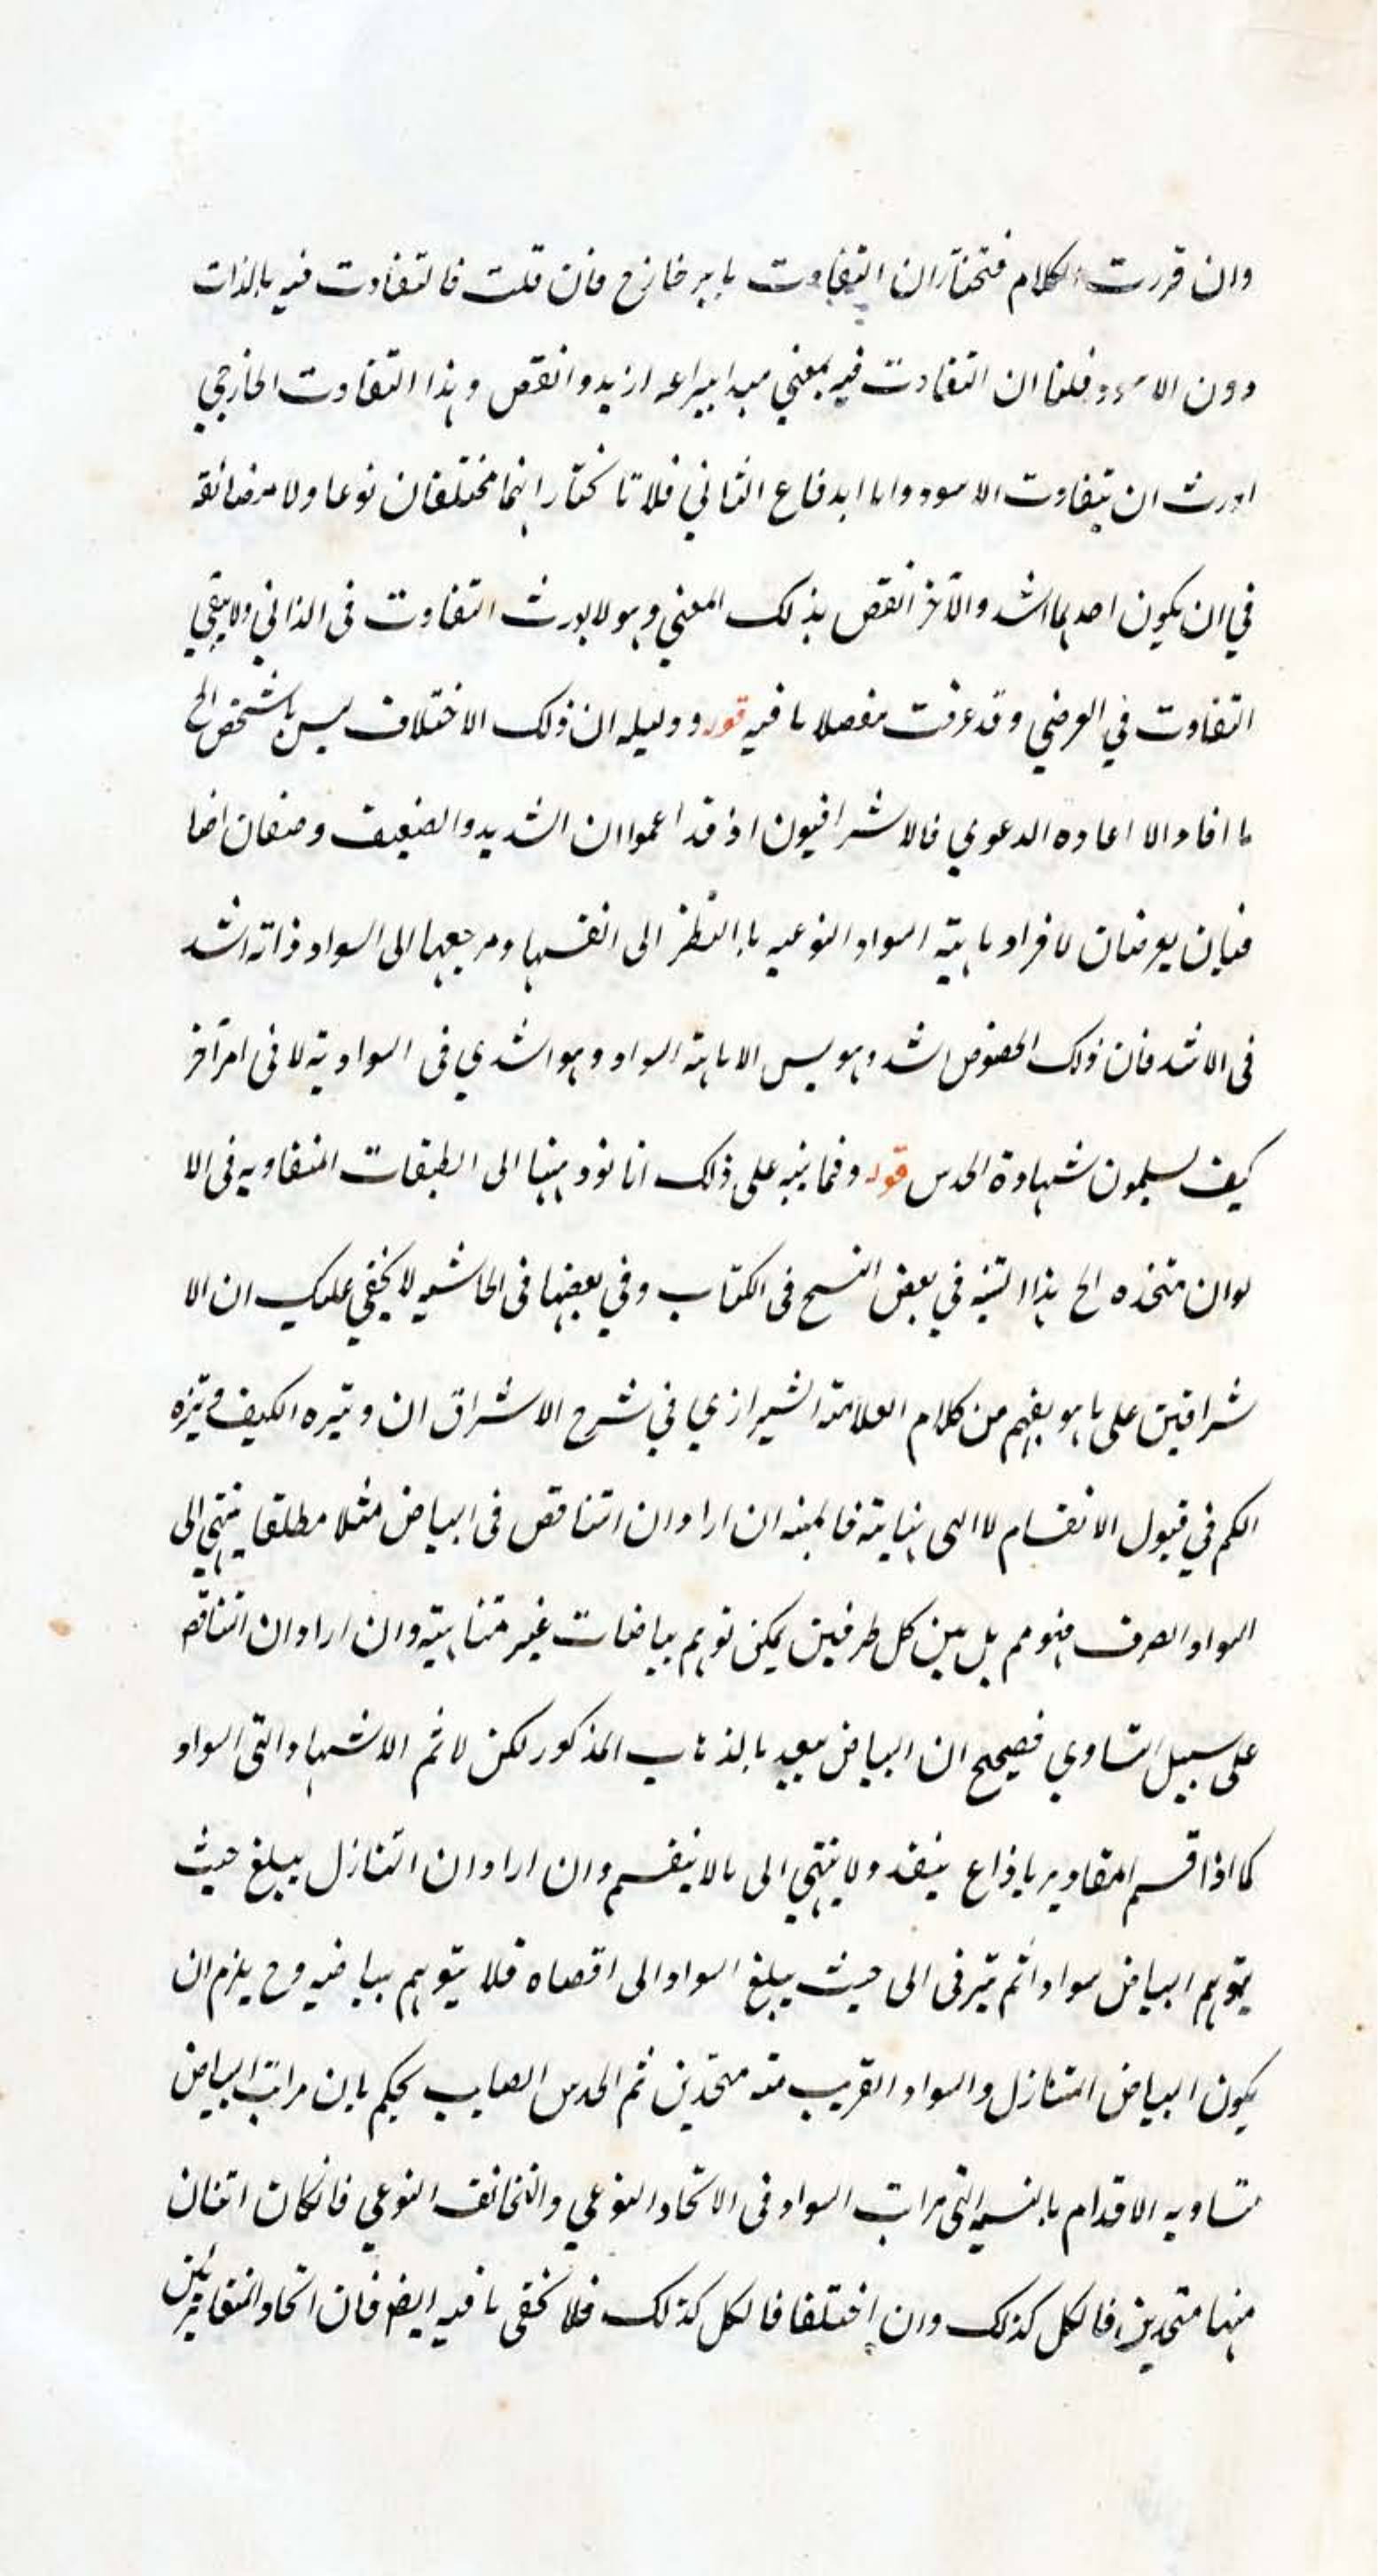 وان قررت الكلام فتختار ان التفاوت بامر خارج فان قلت فالتفاوت فيه بالذات
دون الاسود قلنا ان التفاوت فيه بمعنى ازيد وانقص وهذا التفاوت الخارجي
اورث ان يتفاوت الاسود واما اندفاع الثاني فلانا نختار انهما مختلفان نوعا ولا مضائقة
في ان يكون احدهما اشد والآخر انقص بذلك المعنى وهو لا يورث التفاوت فى الذاتي ولا يبقى
التفاوت في العرضي وقد عرفت مفصلا ما فيه قوله ودليله ان ذلك الاختلاف ليس بالتشخص الخ
ما افاد الا اعاده الدعوي فالاشراقيون اذ قد اعموا ان الشديد والضعيف وصفان اضا
فيان يعرضان لافراد ماهية السواد النوعيه باالنظر الى انفسها ومرجعها الى السواد ذاته اشد
فى الاشد فان ذلك الخصوص اشد وهو ليس الا ماهية السواد وهو اشدي فى السوادية لا فى امر آخر
كيف يسلمون شهادة الحدس قوله ومما ينبه على ذلك انا نو ذهبنا الى الطبقات المتفاويه فى الا
لوان متخذه الخ هذا التنبيه في بعض النسخ فى الكتاب وفي بعضها فى الحاشيه لا يخفي عليك ان الا
شراقين على ما هو يفهم من كلام العلامة الشيرازي في شرح الاشراق ان وتيره الكيف وتيرة
الكم في قبول الانقسام لا الى نهاية فالمنبه ان اراد ان التناقص فى البياض مثلا مطلقا ينتهي الى
السواد الصرف فهو مم بل بين كل طرفين يمكن توهم بياضات غير متناهية وان اراد ان التناقص
على سبيل التساوي فصحيح ان البياض يبيد بالذهاب المذكور لكن لا ثم الاشتهاد التى السواد
كما اذا قسم المقادير باذراع ينفد ولا ينتهي الى ما لا ينقسم وان اراد ان التنازل يبلغ حيث
يتوهم البياض سوادا ثم يترقى الى حيث يبلغ السواد الى اقصاه فلا يتوهم بياضيه وح يلزم ان
يكون البياض المتنازل والسواد القريب منه متحدين ثم الحدس الصايب يحكم بان مراتب البياض
متساويه الاقدام بالنسبة التى مراتب السواد فى الاتحاد النوعي والتخالف النوعي فانكان اثنان
منها متحدين فالكل كذلك وان اختلفا فالكل كذلك فلا يخفى ما فيه ايضا فان اتحاد المتقاربين